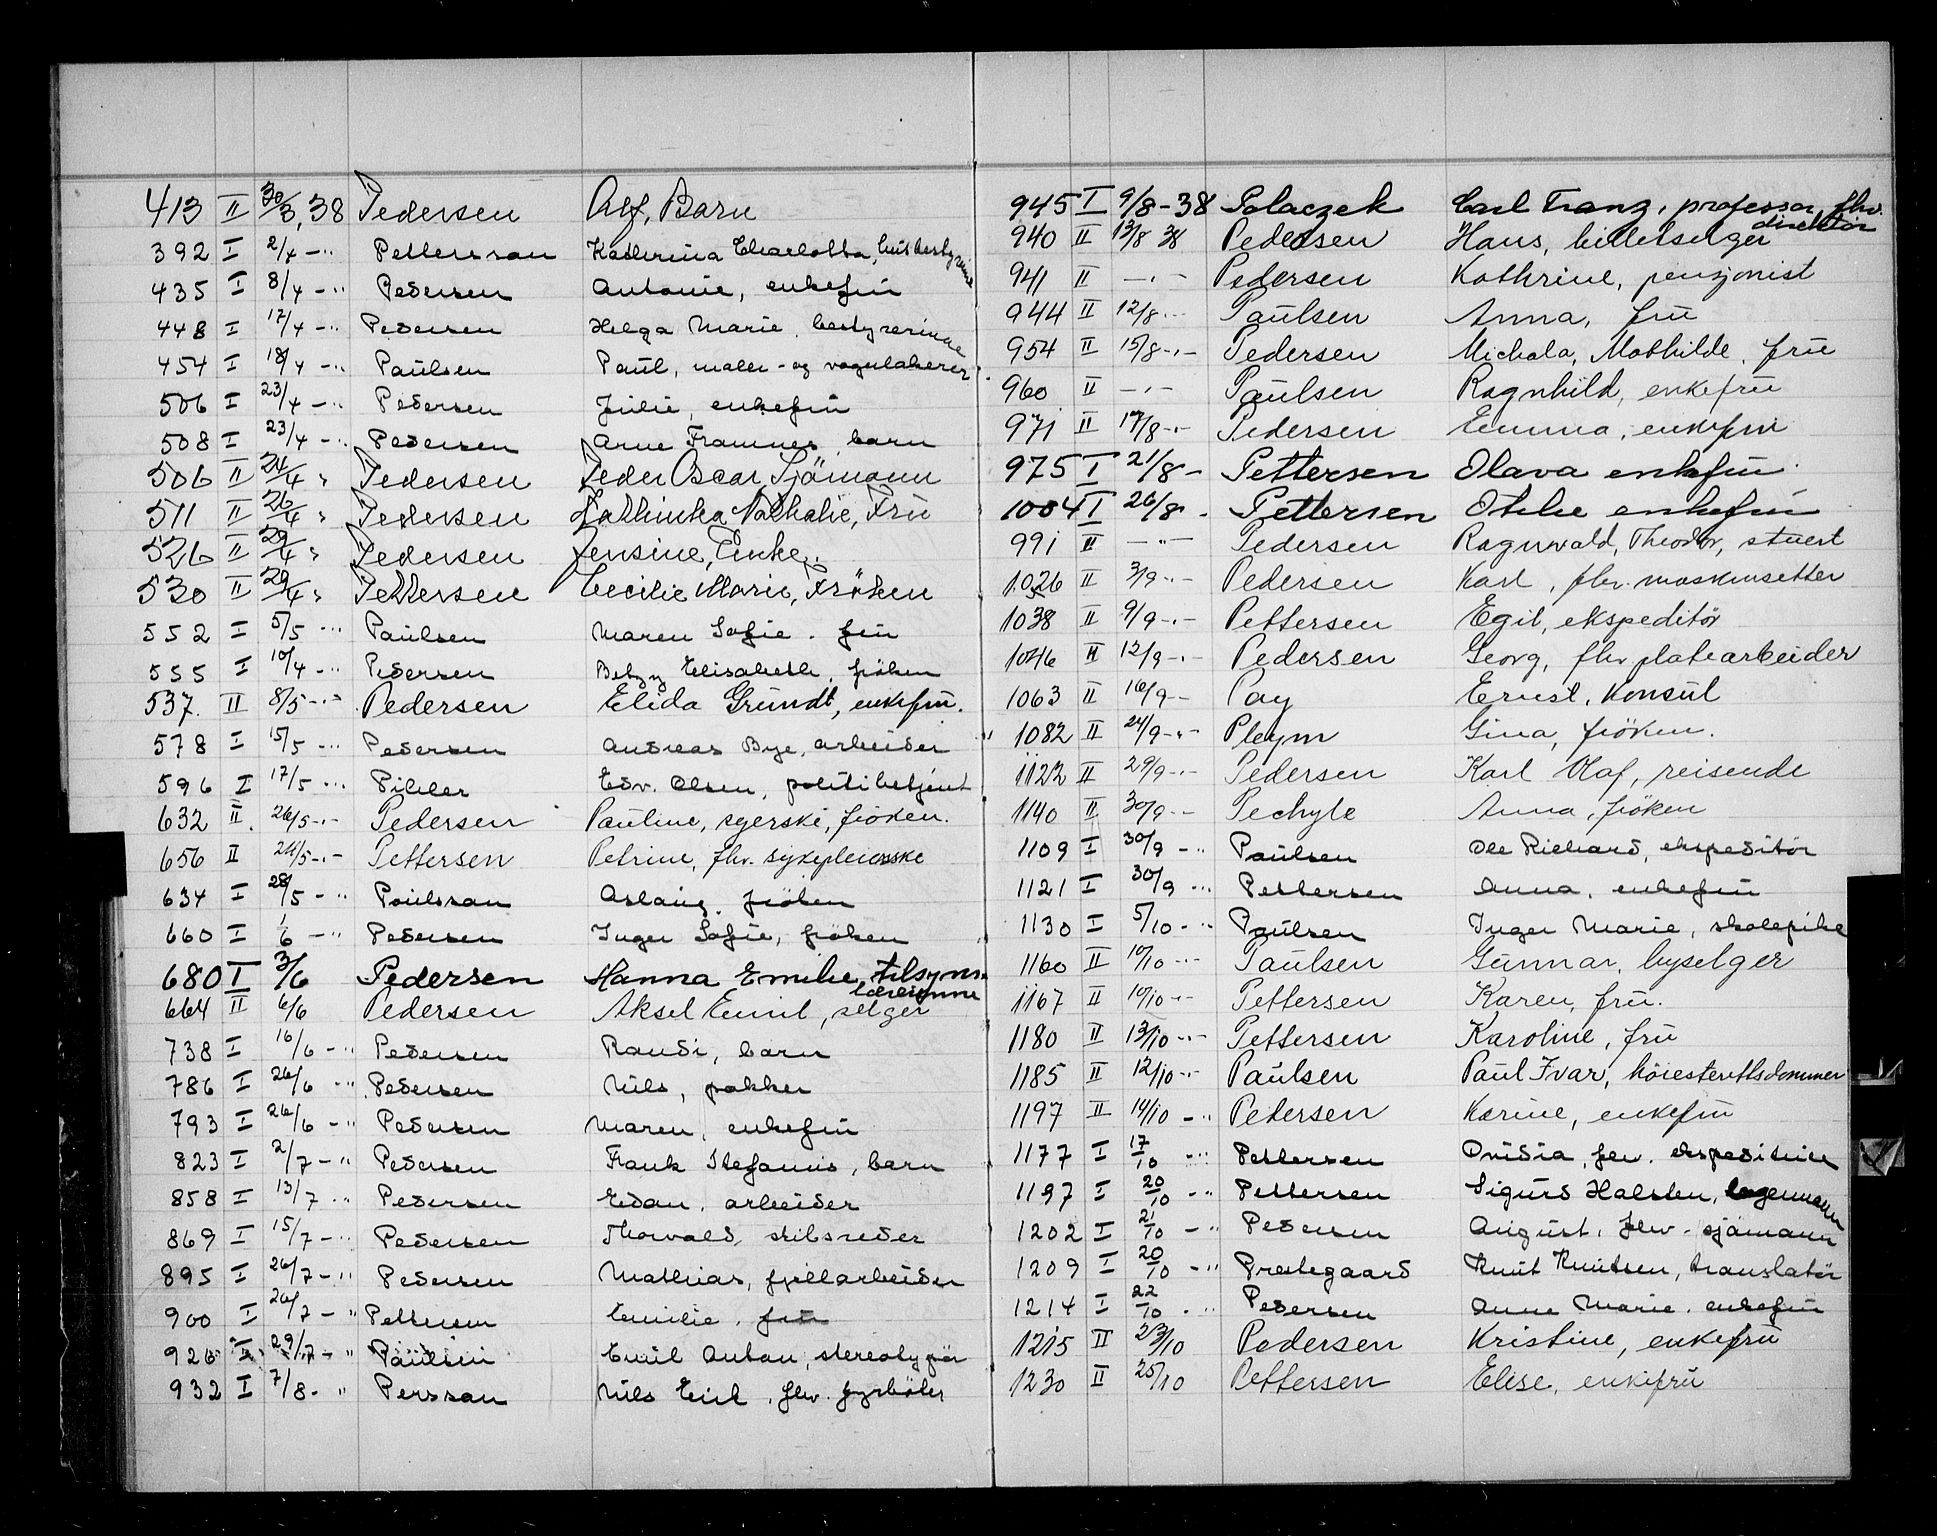 413 II 30/3, 38 Pedersen Alf, Barn
392 I 2/4 -" Pettersson Kathrina Charlotta, husbestyrerinne
435 I 8/4 -" Pedersen Antonie, enkefru
448 I 17/4 -" Pedersen Helga Marie, bestyrerinne
454 I 18/4 -" Paulsen Paul, maler- og vognlakerer
506 I 23/4 -" Pedersen Julie, enkefru
508 I 23/4 -" Pedersen Arne Framnes, barn
506 II 24/4 " Pedersen Peder Oscar, Sjömann
511 II 26/4 " Pedersen Kathinka Nathalie, Fru
526 II 29/4 " Pedersen Jensine, Enke.
530 II 29/4 " Pettersen Cecilie Marie, Fröken
552 I 5/5 -" Paulsen Maren Sofie, fru
555 I 10/4 -" Pedersen Betzy Elisabeth, fröken
537. II 8/5 -"- Pedersen Elida Grundt, enkefru.
578 I 15/5 -" Pedersen Andreas Bye, arbeider
596 I 17/5 -" Pihler Edv. Olsen, politibetjent
632 II. 26/5 -"- Pedersen Pauline, syerske, fröken.
656 II 24/5 -"- Pettersen Petrine, fhv. sykepleierske
634 I 28/5 -" Poulsson Aslaug, fröken
660 I 1/6 -" Pedersen Inger Sofie, fröken
680 I 3/6 Pedersen Hanna Emilie, tilsyns-
lærerinne
664 II 6/6 Pedersen Aksel Emil, selger
738 I 16/6 -" Pedersen Randi, barn
786 I 26/6 -" Pedersen Nils, pakker
793 I 26/6 -" Pedersen Maren, enkefru
823 I 2/7 -" Pedersen Frank Stefanus, barn
858 I 13/7 -" Pedersen Edan, arbeider
869 I 15/7 -" Pedersen Thorvald, skibsreder
895 I 26/7 -" Pedersen Mathias, fjellarbeider
900 I 26/7 -" Pettersen Emilie, fru
926 I 29/7 -" Paulsen Emil Anton, stereotypör
932 I 7/8 - " Persson Nils Emil, fhv. fyrböter
945 I 9/8-38 Polaczek Carl Franz, professor, fhv.
direktör
940 II 13/8 38 Pedersen Hans, billetselger
941 II -"- Pedersen Kathrine, pensjonist
944 II 12/8 -"- Paulsen Anna, fru
954 II 15/8 -"- Pedersen Michala, Mathilde, fru
960 II -"- Paulsen Ragnhild, enkefru
971 II 17/8 -"- Pedersen Emma, enkefru
975 I 21/8 - Pettersen Olava enkefru.
1004 I 26/8 - Pettersen Otilie enkefru
991 II -"- Pedersen Ragnvald, Theodor, stuert
1026 II 3/9 -"- Pedersen Karl, fhv. maskinsetter
1038 II 9/9 -"- Pettersen Egil, ekspeditör
1046 II 12/9 -"- Pedersen Georg, fhv. platearbeider
1063 II 16/9 - Pay Ernst, Konsul
1082 II 24/9 -"- Pleym Gina, fröken.
1122 II 29/9 -"- Pedersen Karl Olaf, reisende
1140 II 30/9 -"- Pechyle Anna, fröken
1109 I 30/9 -" Paulsen Ole Richard, ekspeditör
1121 I 30/9 -" Pettersen Anna, enkefru
1130 I 5/10 -" Paulsen Inger Marie, skolepike
1160 II 10/10 -"- Paulsen Gunnar, byselger
1167 II 10/10 -"- Pettersen Karen, fru.
1180 II 13/10 -"- Pettersen Karoline, fru
1185 II 12/10 -"- Paulsen Paul Ivar, höiesterettsdommer
1197 II 14/10 -" Petersen Karine, enkefru
1177 I 17/10 -" Pettersen Ovidia, fhv. ekspeditrice
1197 I 20/10 -" Pettersen Sigurd Halsten, lagermann
1202 I 21/10 -" Pedersen August, fhv. sjömann
1209 I 20/10 -" Prestegaard Knut Knutsen, translatör
1214 I 22/10 -" Pedersen Anne Marie, enkefru
1215 II 23/10 Pedersen Kristine, enkefru
1230 II 25/10 Pettersen Elise, enkefru